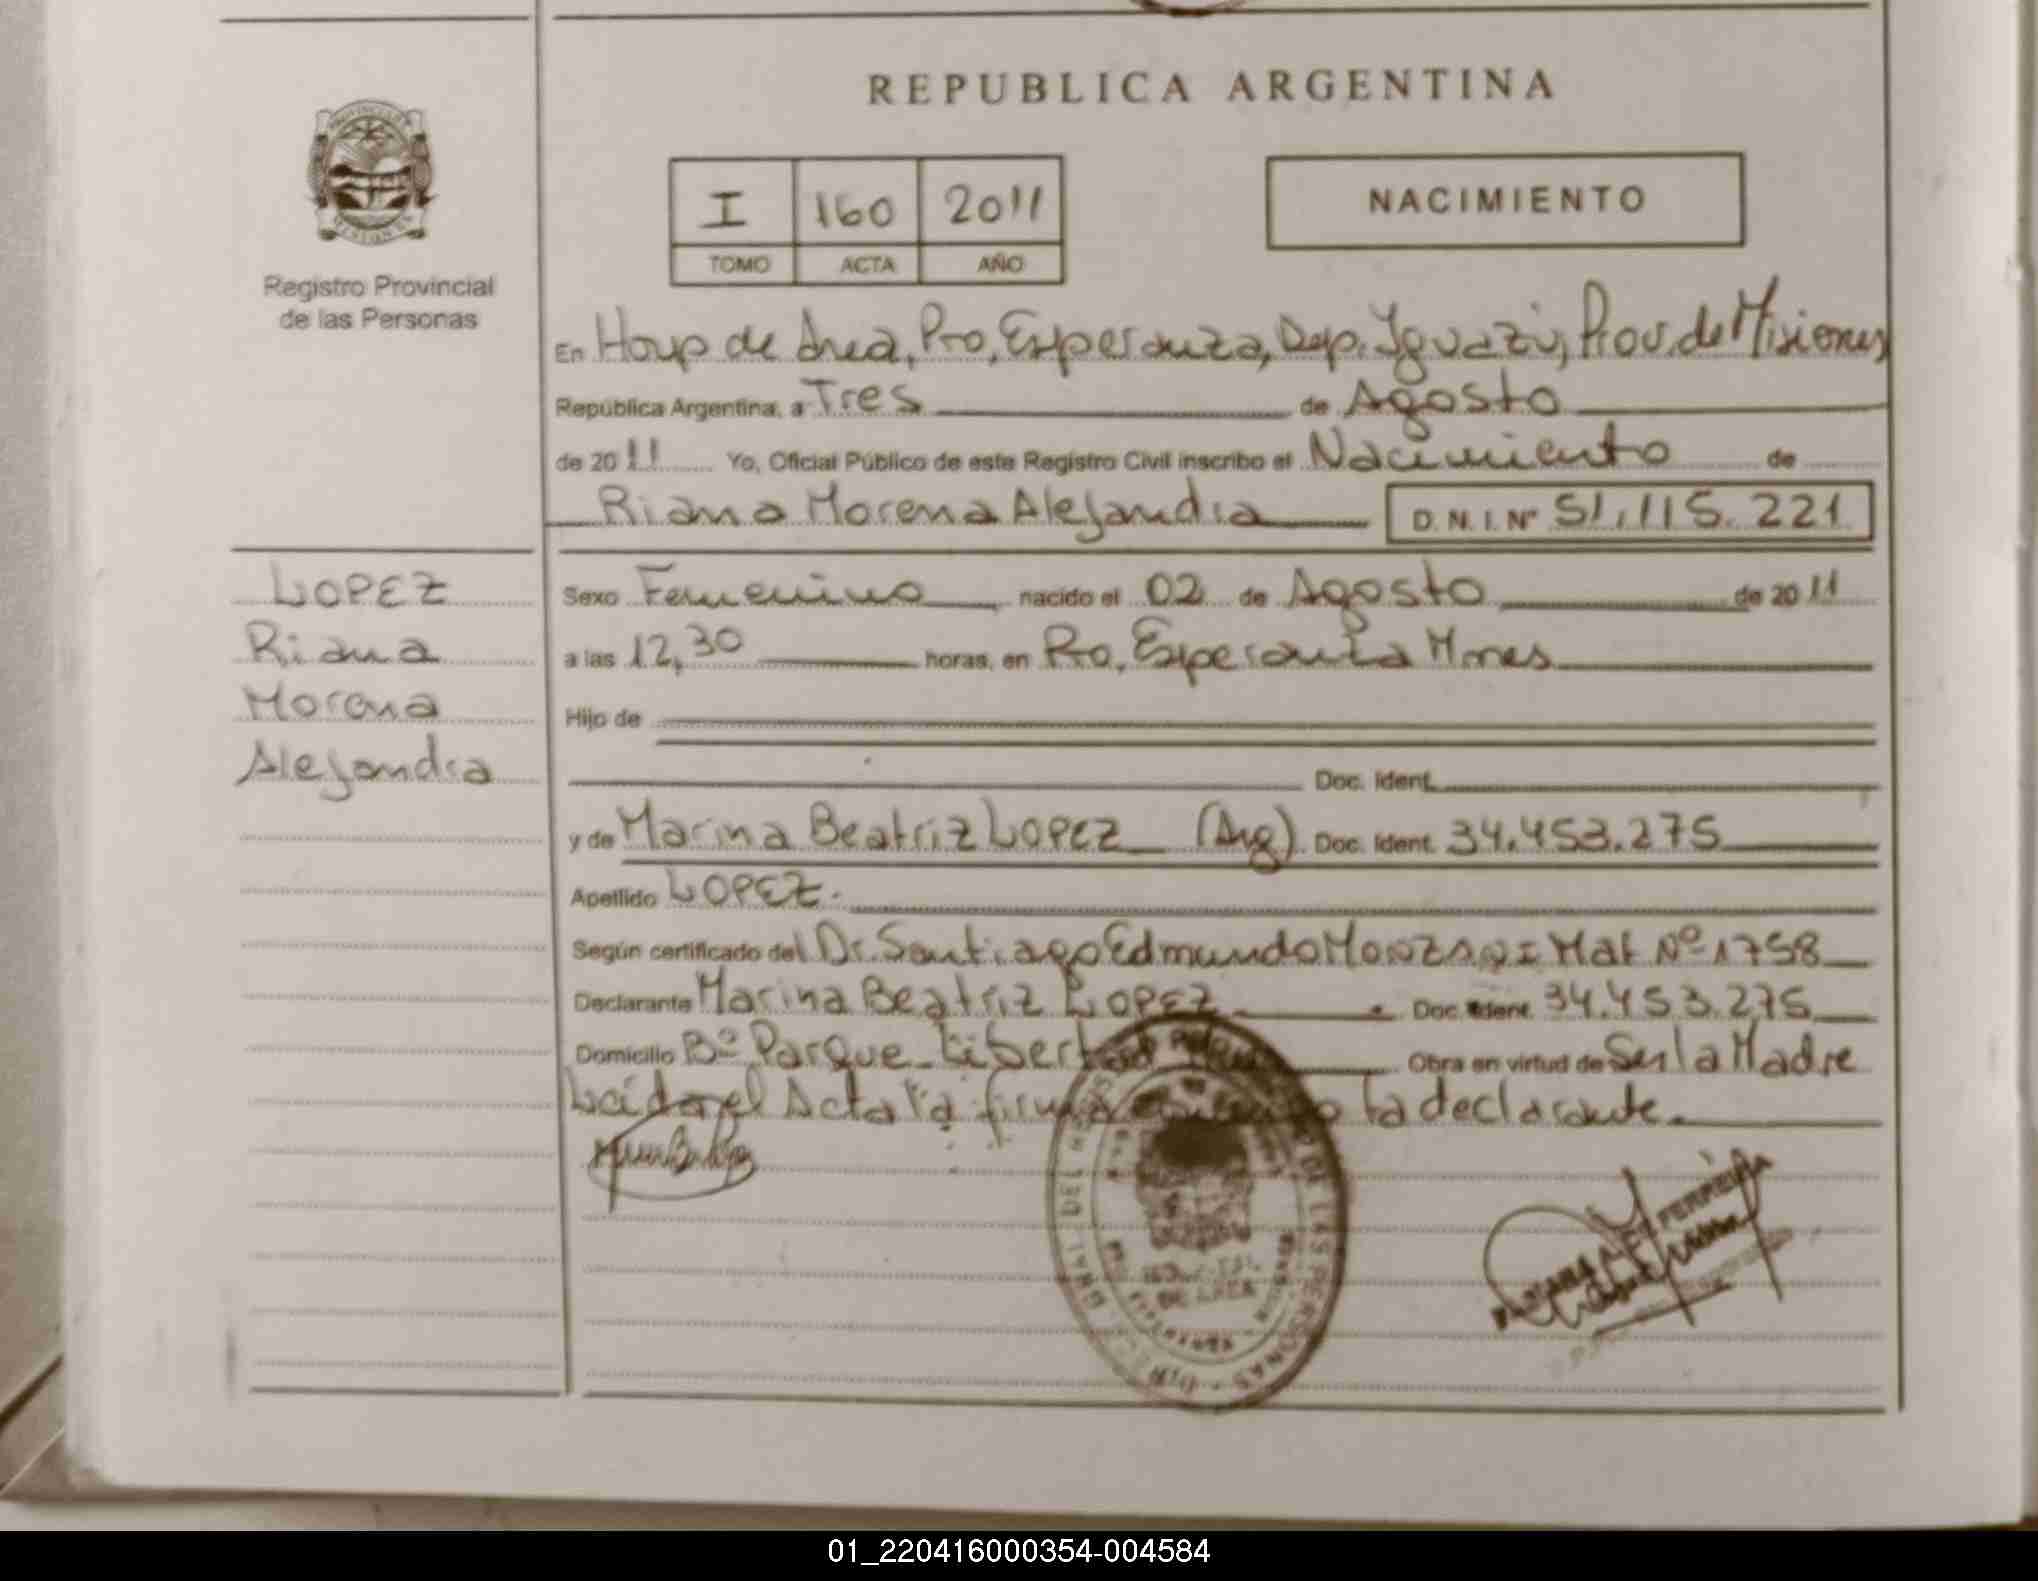 REPUBLICA ARGENTINA
I 160 2011
TOMO ACTA AÑO
NACIMIENTO
Registro Provincial
de las Personas
En Hosp de Area, Pto, Esperanza, Dep. Iguazú, Prov. de Misiones
República Argentina, a Tres de Agosto
de 2011 Yo, Oficial Público de este Registro Civil inscribo el Nacimiento de
Riana Morena Alejandra D.N.I.Nº 51.115.221
LOPEZ
Riana
Morena
Alejandra
Sexo Femenino nacido el 02 de Agosto de 2011
a las 12,30 horas, en Pto, Esperanza Mnes
Hijo de
Doc. Ident.
y de Marina Beatriz LOPEZ (Arg). Doc. Ident. 34.453.275
Apellido LOPEZ.
Según certificado del Dr. Santiago Edmundo MONZANI Mat Nº 1758
Declarante Marina Beatriz LOPEZ Doc. Ident. 34.453.275
Domicilio Bº Parque Libertad Obra en virtud de Ser la Madre
Leída el Acta la firma la declarante.
DE LAS PERSONAS
DE AREA
FERREIRA
01_220416000354-004584